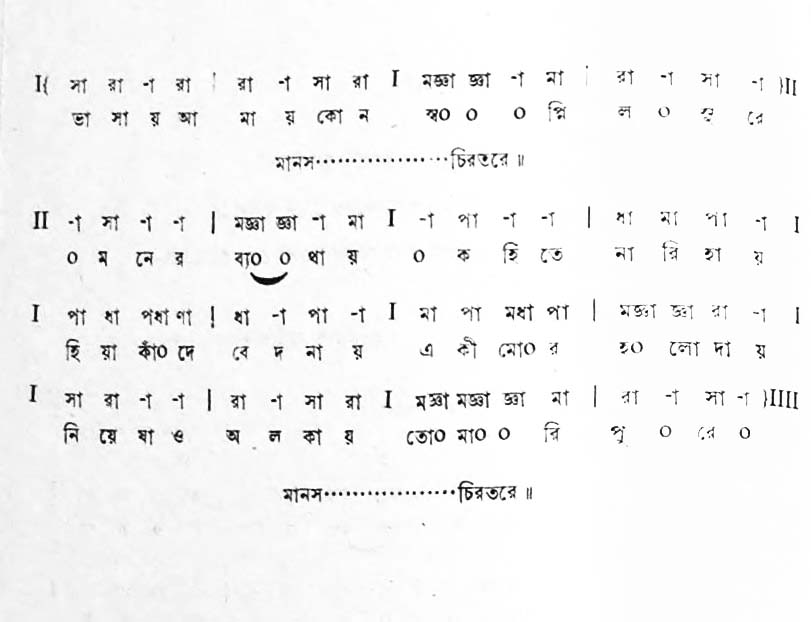 I{ সা রা -া রা | রা -া সা রা I মজ্ঞা জ্ঞা -া মা | রা -া সা -া }II
ভা সা য় আ মা য় কো ন স্ব০ ০ ০ প্নি ল ০ সু রে
মানস··················চিরতরে ॥
II -া সা -া -া | মজ্ঞা জ্ঞা -া মা I -া পা -া -া | ধা মা পা -া I
০ ম নে র ব্য০ ০ থা য় ০ ক হি তে না রি হা য়
I পা ধা পধা ণা | ধা -া পা -া I মা পা মধা পা | মজ্ঞা জ্ঞা রা -া I
হি য়া কাঁ০ দে বে দ না য় এ কী মো০ র হ০ লো দা য়
I সা রা -া -া | রা -া সা রা I মজ্ঞা মজ্ঞা জ্ঞা মা | রা -া সা -া }IIII
নি য়ে যা ও অ ল কা য় তো০ মা০ ০ রি পু ০ রে ০
মানস··················চিরতরে ॥